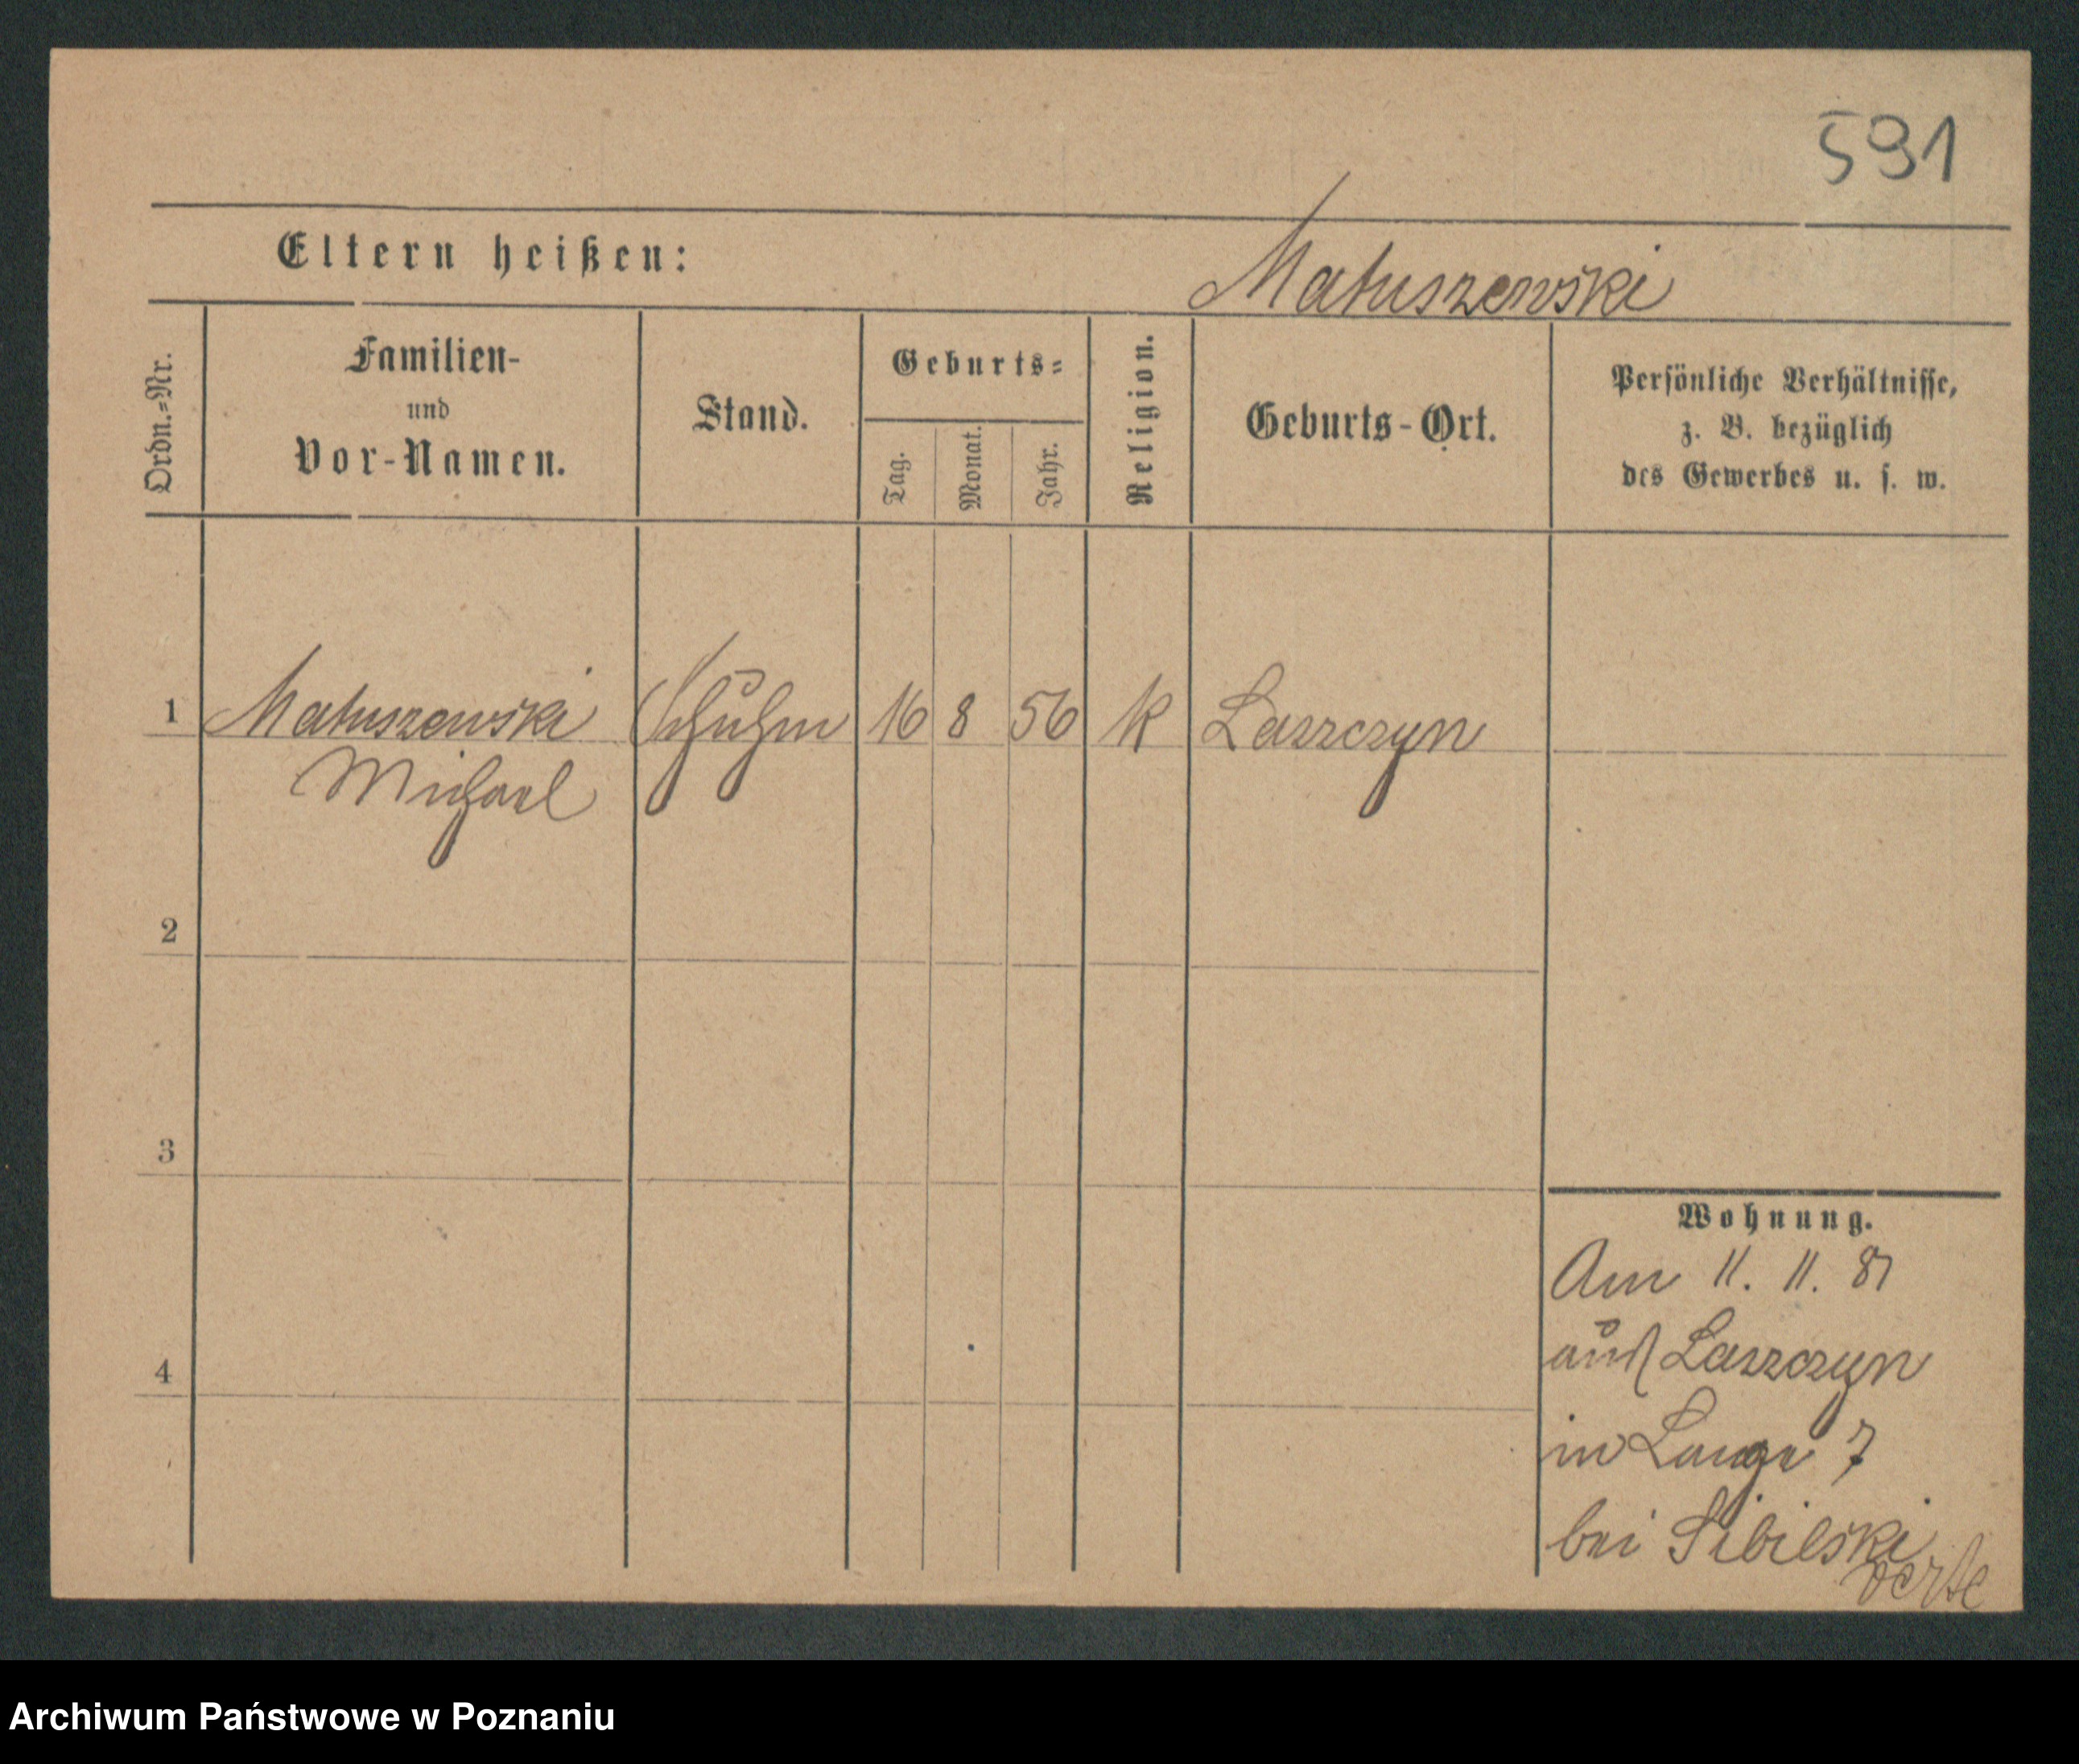 591
Eltern heißen:
Matuszewski
Ordn.=Nr.
Familien-
und
Vor-Namen.
Stand.
Geburts=
Tag.
Monat.
Jahr.
Religion.
Geburts-Ort.
Persönliche Verhältnisse,
z. B. bezüglich
des Gewerbes u. s. w.
1 Matuszewski Schuhm 16 8 56 K Laszczyn
Michael
2
3
4
Wohnung.
Am 11. 11. 81
aus Laszczyn
in Lange 7
bei Sibilski
verte
Archiwum Państwowe w Poznaniu